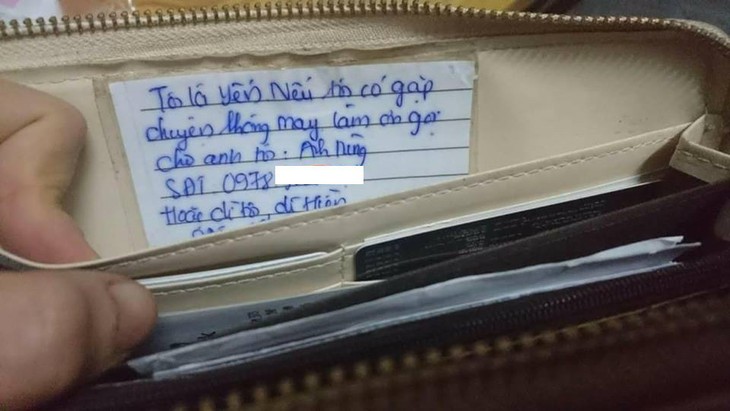 Tôi là Yến Nếu tôi có gặp
chuyện không may làm ơn gọi
cho anh tôi: Anh Dũng
SĐT 0978
Hoặc dì tôi, dì Hiền